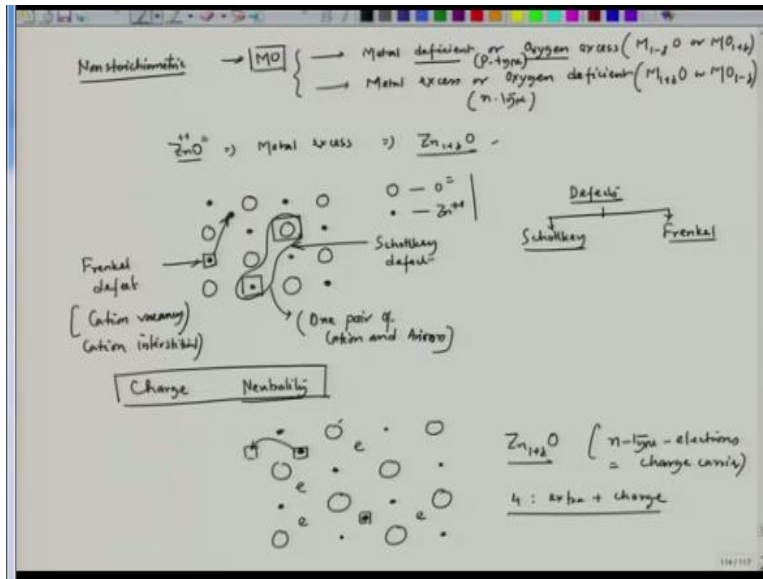 Nonstoichiometric → MO → Metal deficient or Oxygen excess (M1-δO or MO1+δ)
(P-type)
→ Metal excess or Oxygen deficient (M1+δO or MO1-δ)
(n-type)
Zn++O= => Metal excess => Zn1+δO
O — O=
• — Zn++
Defects
Schottkey
Frenkel
Schottkey
defect
Frenkel
defect
[Cation vacancy)
Cation interstitial)
(One pair of
Cation and Anion)
Charge Neutrality
e
e
e
e
Zn1+δO (n-type - electrons
= charge carrier)
4 : extra + charge
114/117